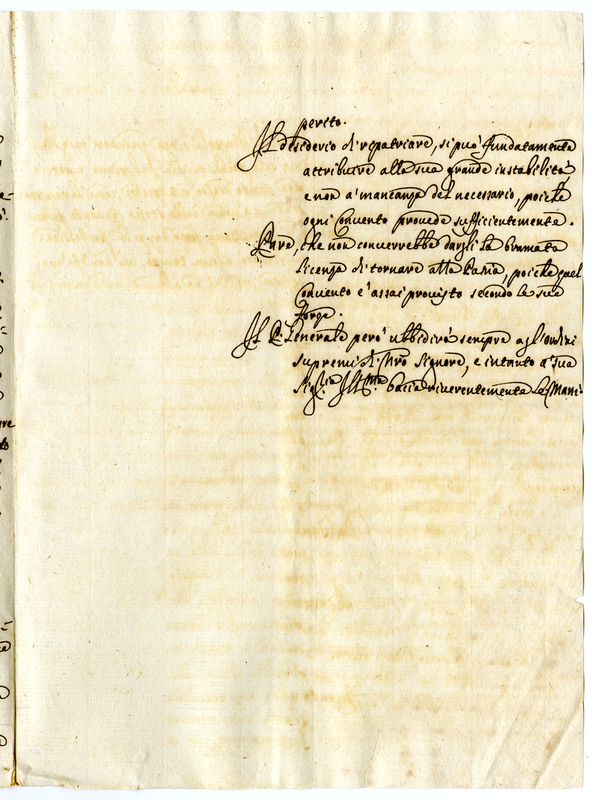 perito.
Il desiderio di repatriare, si può fundatamente
attribuire alla sua grande instabilità
e non a' mancanza del necessario, poiche
ogni Convento provede sufficientemente.
Pare, che non converrebbe dargli la bramata
licenza di tornare alla Patria, poiche quel
Convento e' assai provisto secondo le sue
forze.
Il P. Generale però ubbidirà sempre agl'ordini
supremi di Nro Signore, e intanto a' Sua
Sig.ria Ill.ma bacia riverentemente le Mani.